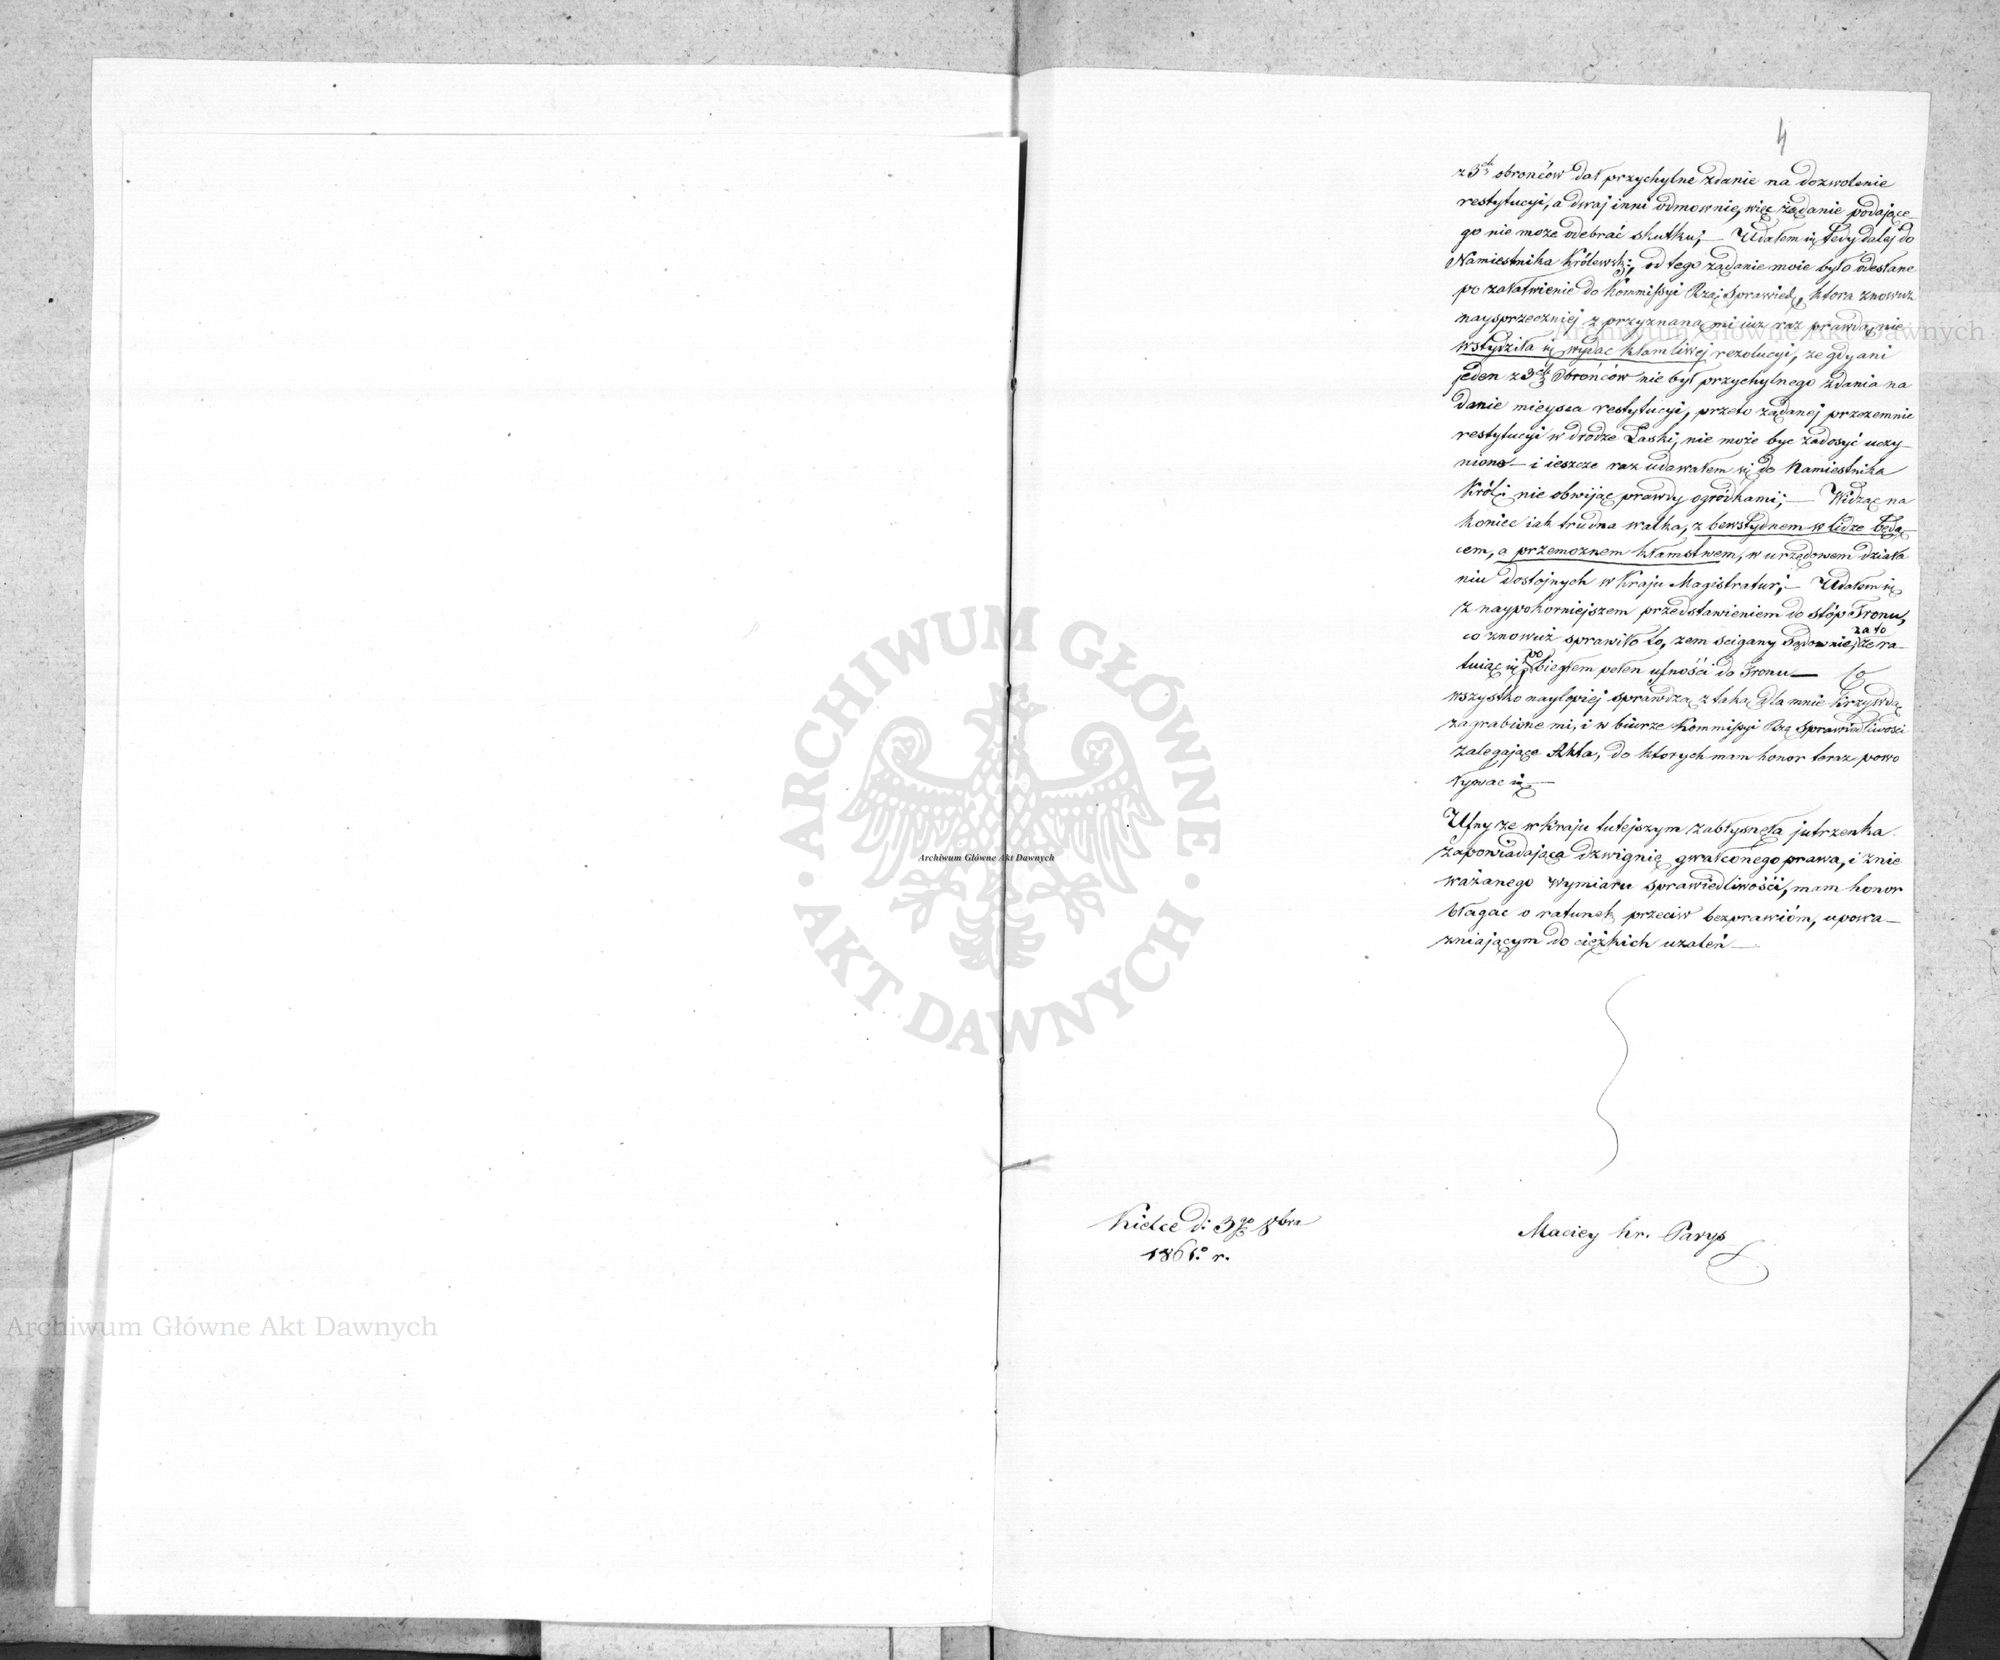 4
z 3ch obrońców dał przychylne zdanie na dozwolenie
restytucyi, a dwaj inni odmownie, więc żądanie podające-
go nie może odebrać skutku; — Udałem się tedy dalej do
Namiestnika Królewsk:, od tego żądanie moie było odesłane
po załatwienie do Kommissyi Rzą: Sprawied:, ktora znowuz
naysprzeczniej z przyznaną mi iuz raz prawdą, nie
wstydziła się wydac kłamliwej rezolucyi, ze gdy ani
jeden z 3ch Obrońców nie był przychylnego zdania na
danie mieysca restytucyi, przeto żądanej przezemnie
restytucyi w drodze Łaski, nie może byc zadosyć uczy-
niono — i ieszcze raz udawałem się do Namiestnika
Król: nie obwijając prawdy ogródkami; — Widząc na
koniec iak trudna walka, z bewstydnem w lidze będą
cem, a przemoznem kłamstwem, w urzędowem działa
niu dostojnych w Kraju Magistratur; — Udałem się
z naypokorniejszem przedstawieniem do stóp Tronu,
co znowuż sprawiło to, zem scigany Sądownie, zato że ra-
tuiąc się pobiegłem pełen ufności do Tronu — To
wszystko naylepiej sprawdzą z taką dla mnie Krzywdą
zagrabione mi, i w biurze Kommissyi Rzą Sprawiedliwości
zalegające Akta, do ktorych mam honor teraz powo
ływac się —
Ufny ze w Kraju tutejszym zabłysnęła jutrzenka
zapowiadająca dzwignię gwałconego prawa, i znie
ważanego wymiaru sprawiedliwości, mam honor
błagac o ratunek przeciw bezprawióm, upowa-
zniającym do ciężkich uzaleń —
Kielce d: 3go 8bra
1861o r.
Maciey hr. Parys
Archiwum Główne Akt Dawnych
Archiwum Główne Akt Dawnych
ARCHIWUM GŁÓWNE · AKT DAWNYCH ·
Archiwum Główne Akt Dawnych